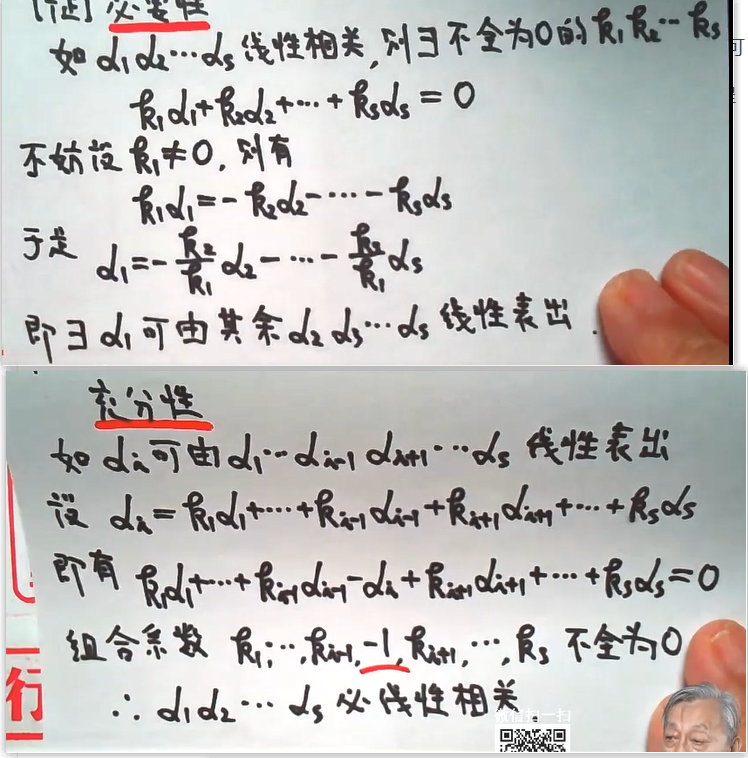 [证] 必要性
如 α₁ α₂ ⋯ αs 线性相关, 则∃不全为0的 k₁ k₂ ⋯ ks
k₁α₁+k₂α₂+⋯+ksαs=0
不妨设 k₁≠0, 则有
k₁α₁=-k₂α₂-⋯-ksαs
于是 α₁=-k₂/k₁ α₂-⋯-k₂/k₁ αs
即∃ α₁ 可由其余 α₂ α₃ ⋯ αs 线性表出.
充分性
如 αi 可由 α₁ ⋯ αi-1 αi+1 ⋯ αs 线性表出
设 αi=k₁α₁+⋯+ki-1αi-1+ki+1αi+1+⋯+ksαs
即有 k₁α₁+⋯+ki-1αi-1-αi+ki+1αi+1+⋯+ksαs=0
组合系数 k₁,⋯,ki-1,-1,ki+1,⋯,ks 不全为0
∴ α₁ α₂ ⋯ αs 必线性相关.
微信扫一扫
行
可